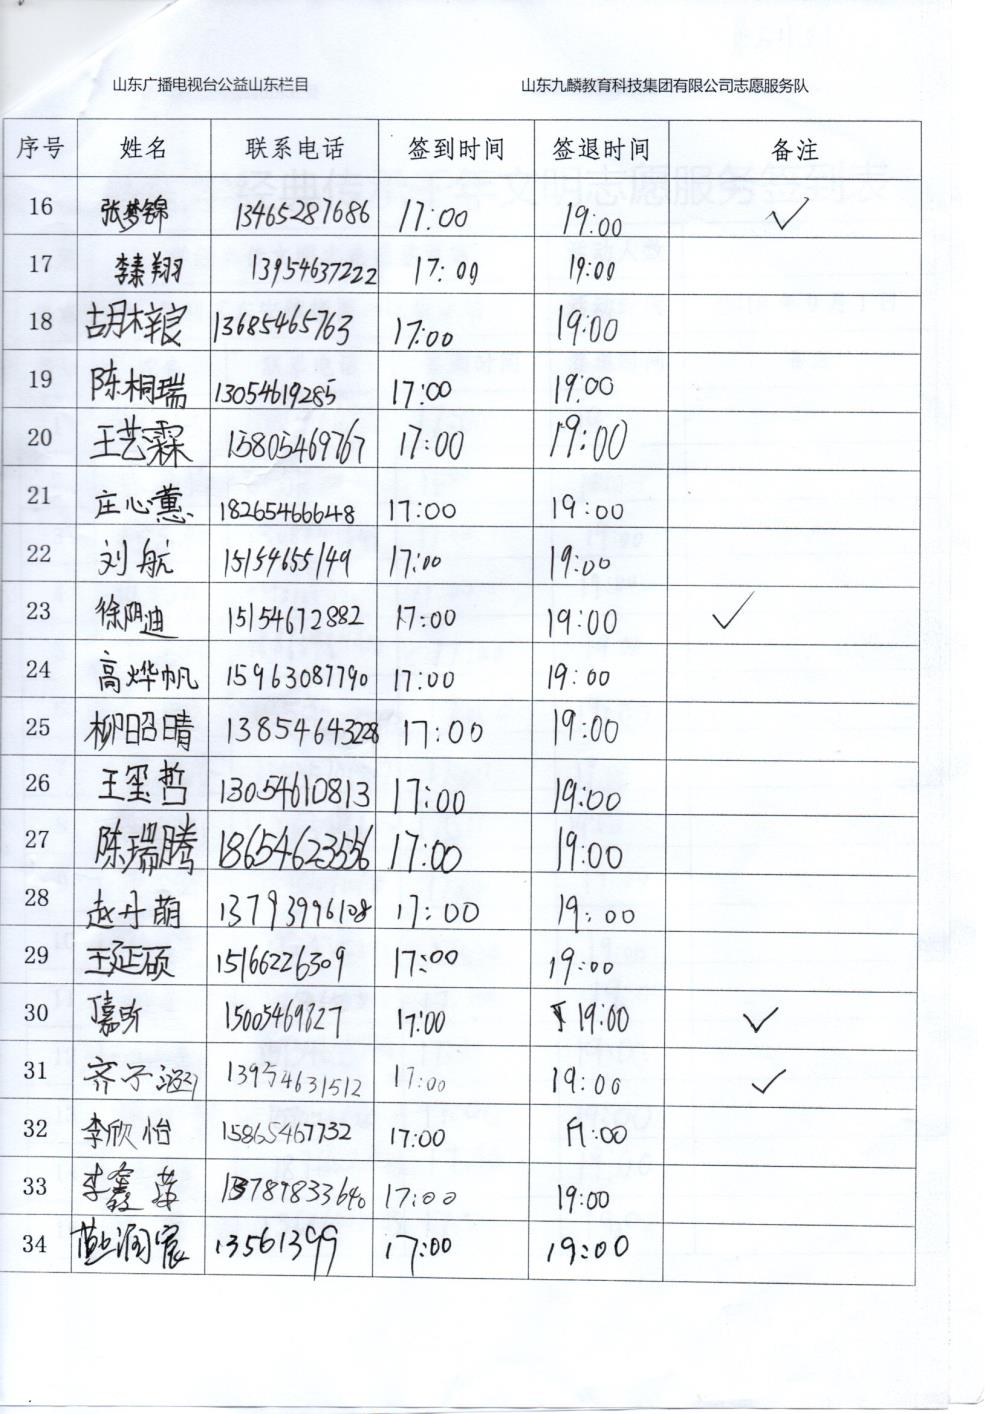 山东广播电视台公益山东栏目 山东九麟教育科技集团有限公司志愿服务队
序号 姓名 联系电话 签到时间 签退时间 备注
16 张梦锦 13465287686 17:00 19:00 ✓
17 李翔 13954637222 17:00 19:00
18 胡梓良 13685465763 17:00 19:00
19 陈桐瑞 13054619285 17:00 19:00
20 王艺霖 15805469767 17:00 19:00
21 庄心蕙 18265466648 17:00 19:00
22 刘航 15154655149 17:00 19:00
23 徐阴迪 15154672882 17:00 19:00 ✓
24 高烨帆 15963087790 17:00 19:00
25 柳昭晴 13854643228 17:00 19:00
26 王玺哲 13054610813 17:00 19:00
27 陈瑞腾 18654623556 17:00 19:00
28 赵丹萌 13793996108 17:00 19:00
29 王延硕 15166226309 17:00 19:00
30 15005469827 17:00 19:00 ✓
31 齐子涵 13954631512 17:00 19:00 ✓
32 李欣怡 15865467732 17:00 19:00
33 李鑫 13789833640 17:00 19:00
34 润宸 13561399 17:00 19:00